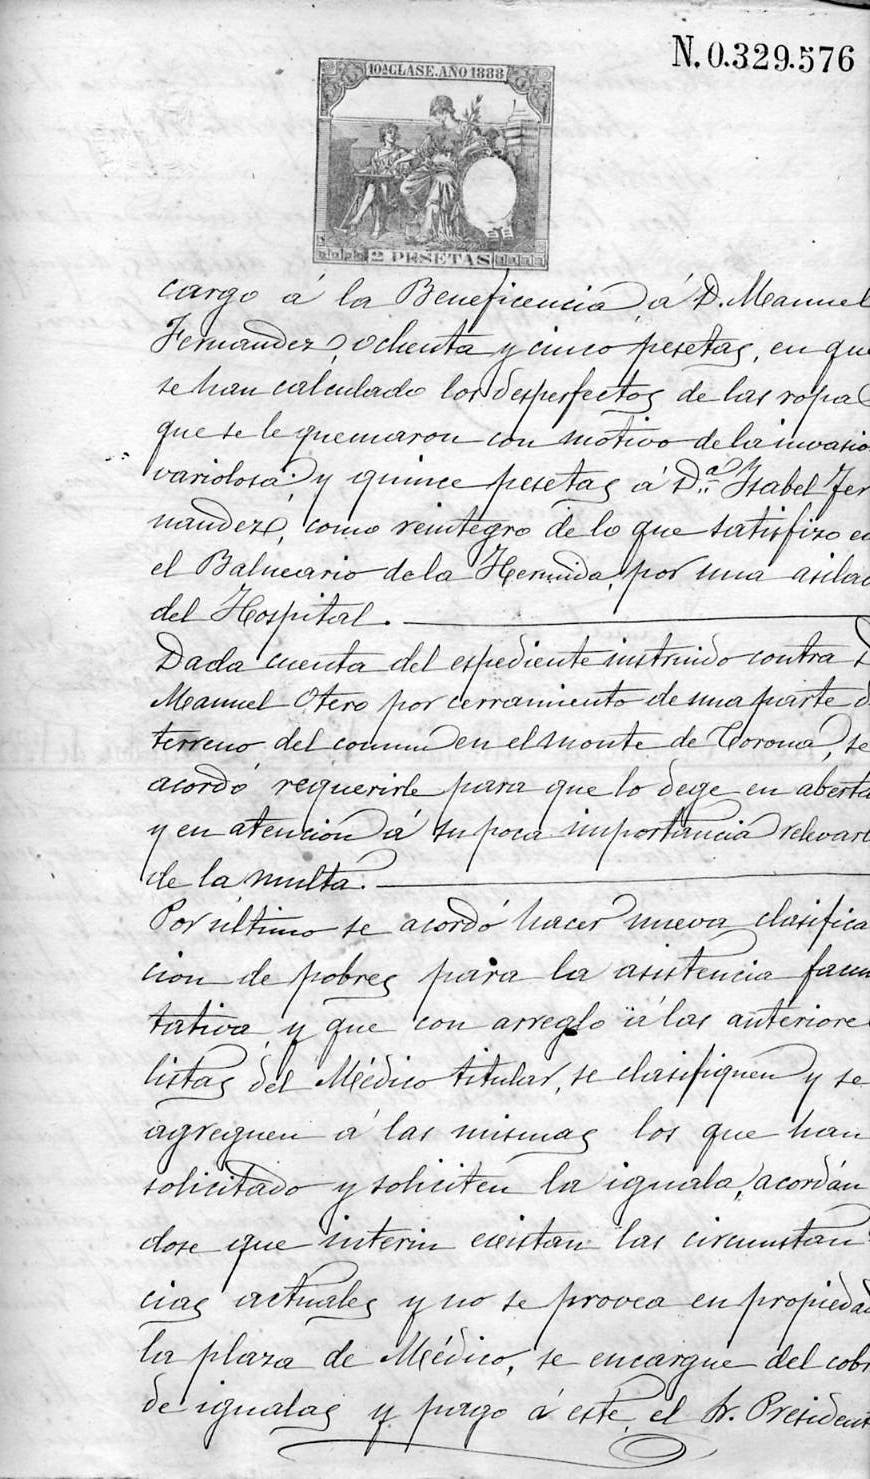 N. 0.329.576
10ª CLASE. AÑO 1888
2 PESETAS
cargo á la Beneficencia, á D. Manuel
Fernandez, ochenta y cinco pesetas, en que
se han calculado los desperfectos de las ropa
que se le quemaron con motivo de la invasio
variolosa; y quince pesetas á D.ª Isabel Fer
nandez, como reintegro de lo que satisfizo en
el Balneario de la Hermida, por una asilad
del Hospital.
Dada cuenta del espediente instruido contra D
Manuel Otero por cerramiento de una parte d
terreno del comun en el monte de Corona, se
acordó requerirle para que lo dege en aberta
y en atencion á su poca importancia relevarl
de la multa.
Por último se acordó hacer nueva clasifica
cion de pobres para la asistencia facul
tativa, y que con arreglo á las anteriore
listas del Médico titular, se clasifiquen y se
agreguen á las mismas los que han
solicitado y soliciten la iguala, acordán
dose que interin existan las circunstan
cias actuales y no se provea en propiedad
la plaza de Médico, se encargue del cobr
de igualas y pago á este, el Sr. President